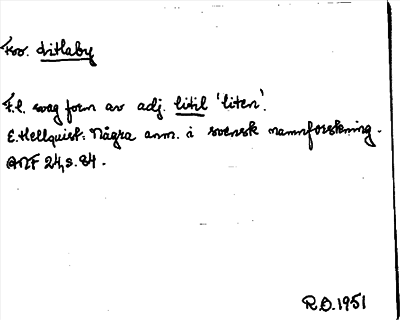 Fsv. Litlaby
F.l. svag form av adj. litil 'liten'.
E. Hellquist: Några anm. i svensk namnforskning.
ANF 24, s. 84.
R.D. 1951